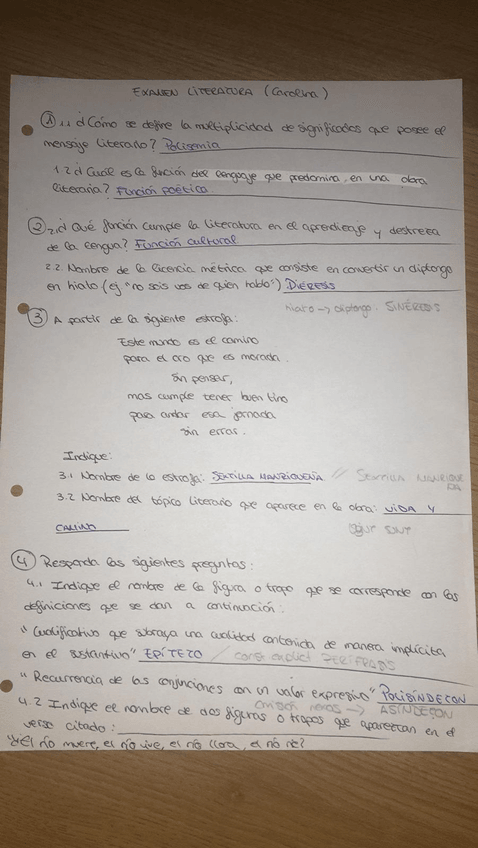 EXAMEN LITERATURA (Carolina)
① 1.1 ¿Cómo se define la multiplicidad de significados que posee el
mensaje literario? Polisemia
1.2 ¿Cuál es la función del lenguaje que predomina, en una obra
literaria? Función poética
② 2.1 ¿Qué función cumple la literatura en el aprendizaje y destreza
de la lengua? Función cultural
2.2. Nombre de la licencia métrica que consiste en convertir un diptongo
en hiato (ej "no sois vos de quien hablo") DIÉRESIS
hiato → diptongo. SINÉRESIS
③ A partir de la siguiente estrofa:
Este mundo es el camino
para el otro que es morada
sin pensar,
mas cumple tener buen tino
para andar esa jornada
sin errar.
Indique:
3.1 Nombre de la estrofa: SEXTILLA MANRIQUEÑA // SEXTILLA MANRIQUE
ÑA
3.2 Nombre del tópico literario que aparece en la obra: VIDA Y
CAMINO
SUNT
④ Responda las siguientes preguntas:
4.1 Indique el nombre de la figura o tropo que se corresponde con las
definiciones que se dan a continuación:
"Cualificativo que subraya una cualidad contenida de manera implícita
en el sustantivo" EPÍTETO / PERÍFRASIS
"Recurrencia de las conjunciones con un valor expresivo" POLISÍNDETON
omisión nexos → ASÍNDETON
4.2 Indique el nombre de dos figuras o tropos que aparezcan en el
verso citado:
"¿El río muere, el río vive, el río llora, el río ríe?